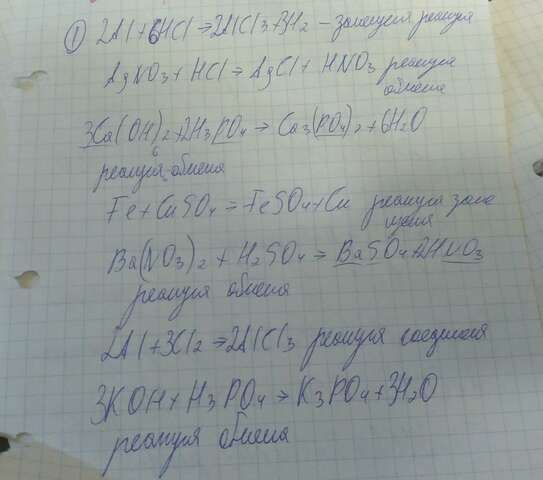 ① 2Al+6HCl→2AlCl3+3H2 – замещения реакция
AgNO3+HCl=AgCl+HNO3 реакция
обмена
3Ca(OH)2+2H3PO4→Ca3(PO4)2+6H2O
6
реакция обмена
Fe+CuSO4=FeSO4+Cu реакция заме
щения
Ba(NO3)2+H2SO4=BaSO4+2HNO3
реакция обмена
2Al+3Cl2→2AlCl3 реакция соединения
3KOH+H3PO4→K3PO4+3H2O
реакция обмена